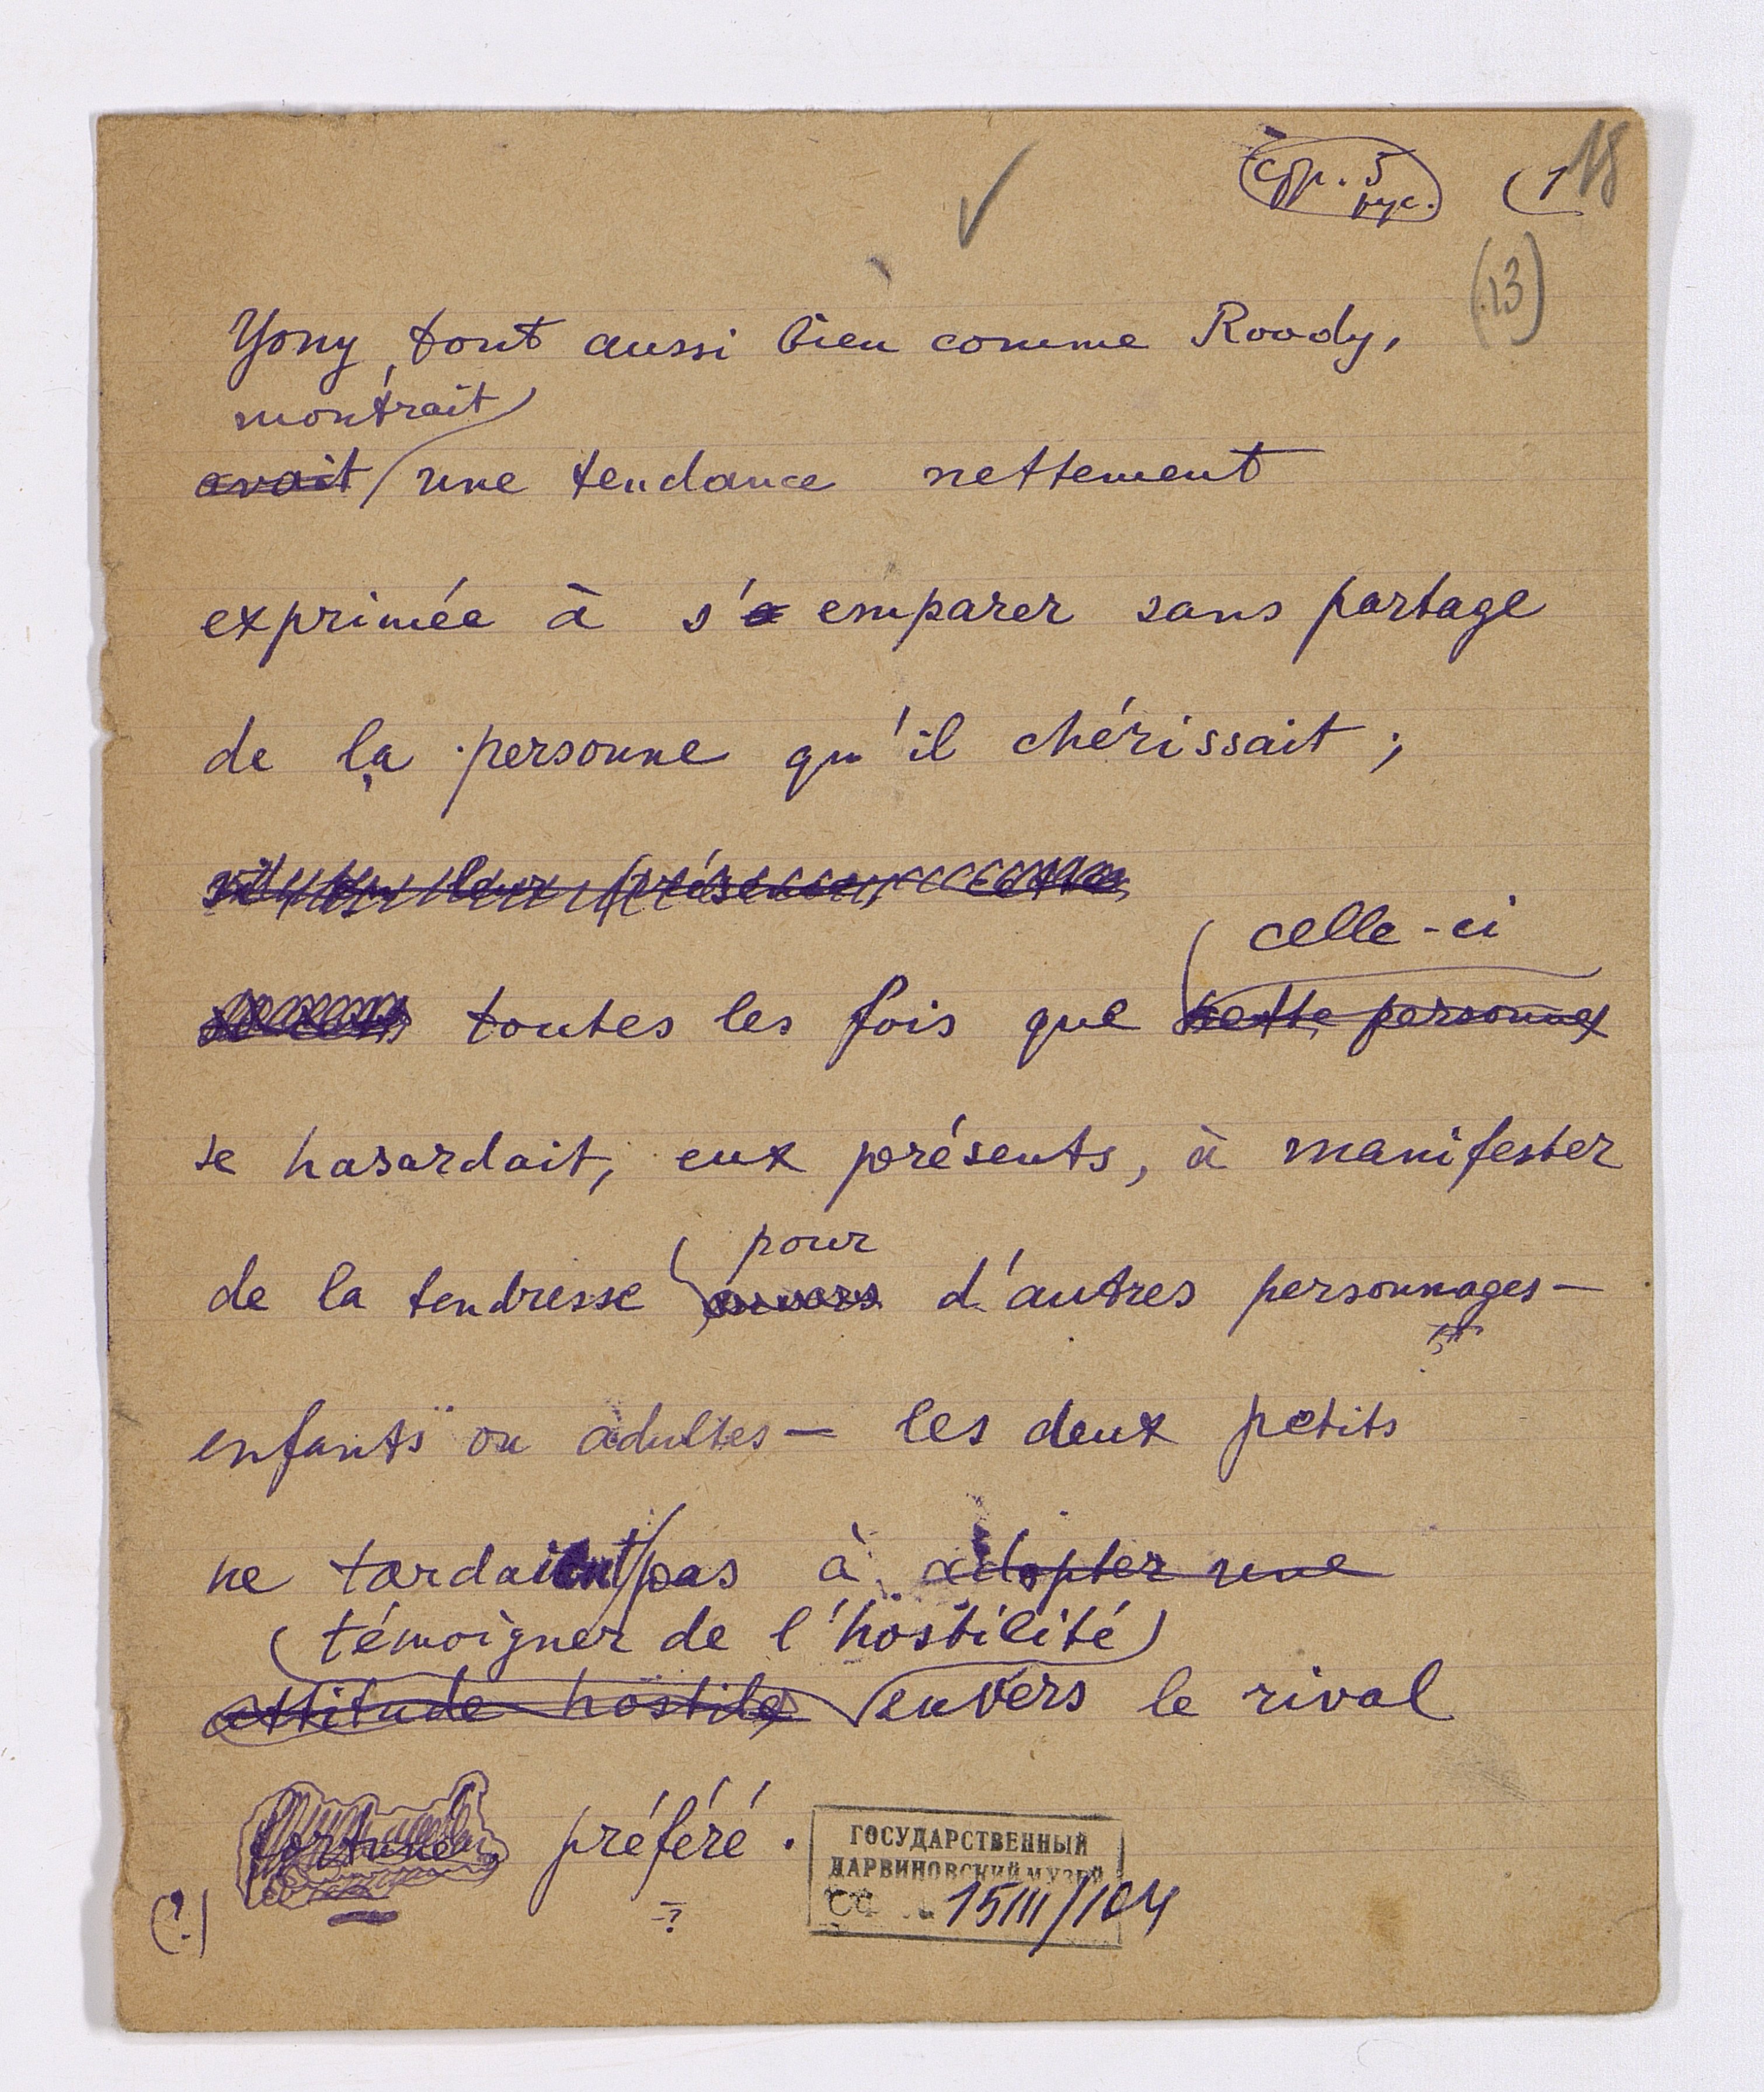 стр. 5 рус.
1
18
(13)
Yony, tout aussi bien comme Roody,
montrait
avait une tendance nettement
exprimée à s'emparer sans partage
de la personne qu'il chérissait ;
leur présence
celle-ci
toutes les fois que cette personne
se hasardait, eux présents, à manifester
pour
de la tendresse envers d'autres personnages —
enfants ou adultes — les deux petits
ne tardaient pas à adopter une
(témoigner de l'hostilité)
attitude hostile envers le rival
fortuné préféré.
(?)
?
ГОСУДАРСТВЕННЫЙ
ДАРВИНОВСКИЙ МУЗЕЙ
15III/104